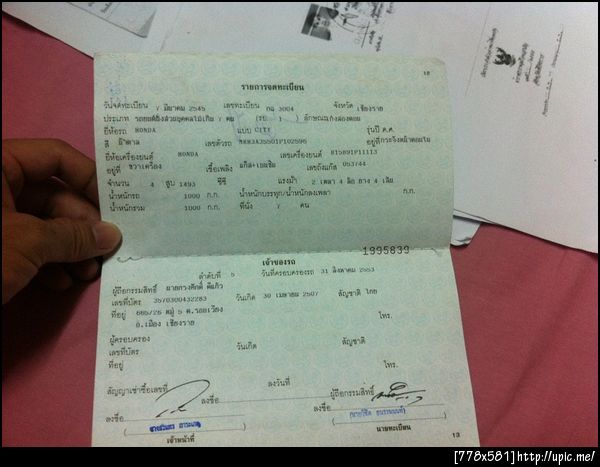 18
รายการจดทะเบียน
วันจดทะเบียน 7 มีนาคม 2545 เลขทะเบียน กฉ 3004 จังหวัด เชียงราย
ประเภท รถยนต์นั่งส่วนบุคคลไม่เกิน 7 คน (รย. 1) ลักษณะ เก๋งสองตอน
ยี่ห้อรถ HONDA แบบ CITY รุ่นปี ค.ศ.
สี น้ำตาล เลขตัวรถ อยู่ที่
ยี่ห้อเครื่องยนต์ HONDA เลขเครื่องยนต์
อยู่ที่ ขวาเครื่อง เชื้อเพลิง เลขถังแก๊ส 053744
จำนวน 4 สูบ 1493 ซีซี แรงม้า 2 เพลา 4 ล้อ ยาง 4 เส้น
น้ำหนักรถ 1000 ก.ก. น้ำหนักบรรทุก/น้ำหนักลงเพลา ก.ก.
น้ำหนักรวม 1000 ก.ก. ที่นั่ง 7 คน
1995839
เจ้าของรถ
ลำดับที่ 5 วันที่ครอบครองรถ 31 สิงหาคม 2553
ผู้ถือกรรมสิทธิ์
เลขที่บัตร 3570300432283 วันเกิด 30 เมษายน 2507 สัญชาติ ไทย
ที่อยู่ 605/26 หมู่ 5 ต.รอบเวียง โทร.
อ.เมือง เชียงราย
ผู้ครอบครอง
เลขที่บัตร วันเกิด สัญชาติ
ที่อยู่ โทร.
สัญญาเช่าซื้อเลขที่ ลงวันที่
ลงชื่อ ผู้ถือกรรมสิทธิ์
ลงชื่อ ลงชื่อ
เจ้าหน้าที่ นายทะเบียน
13
[778x581]http://upic.me/